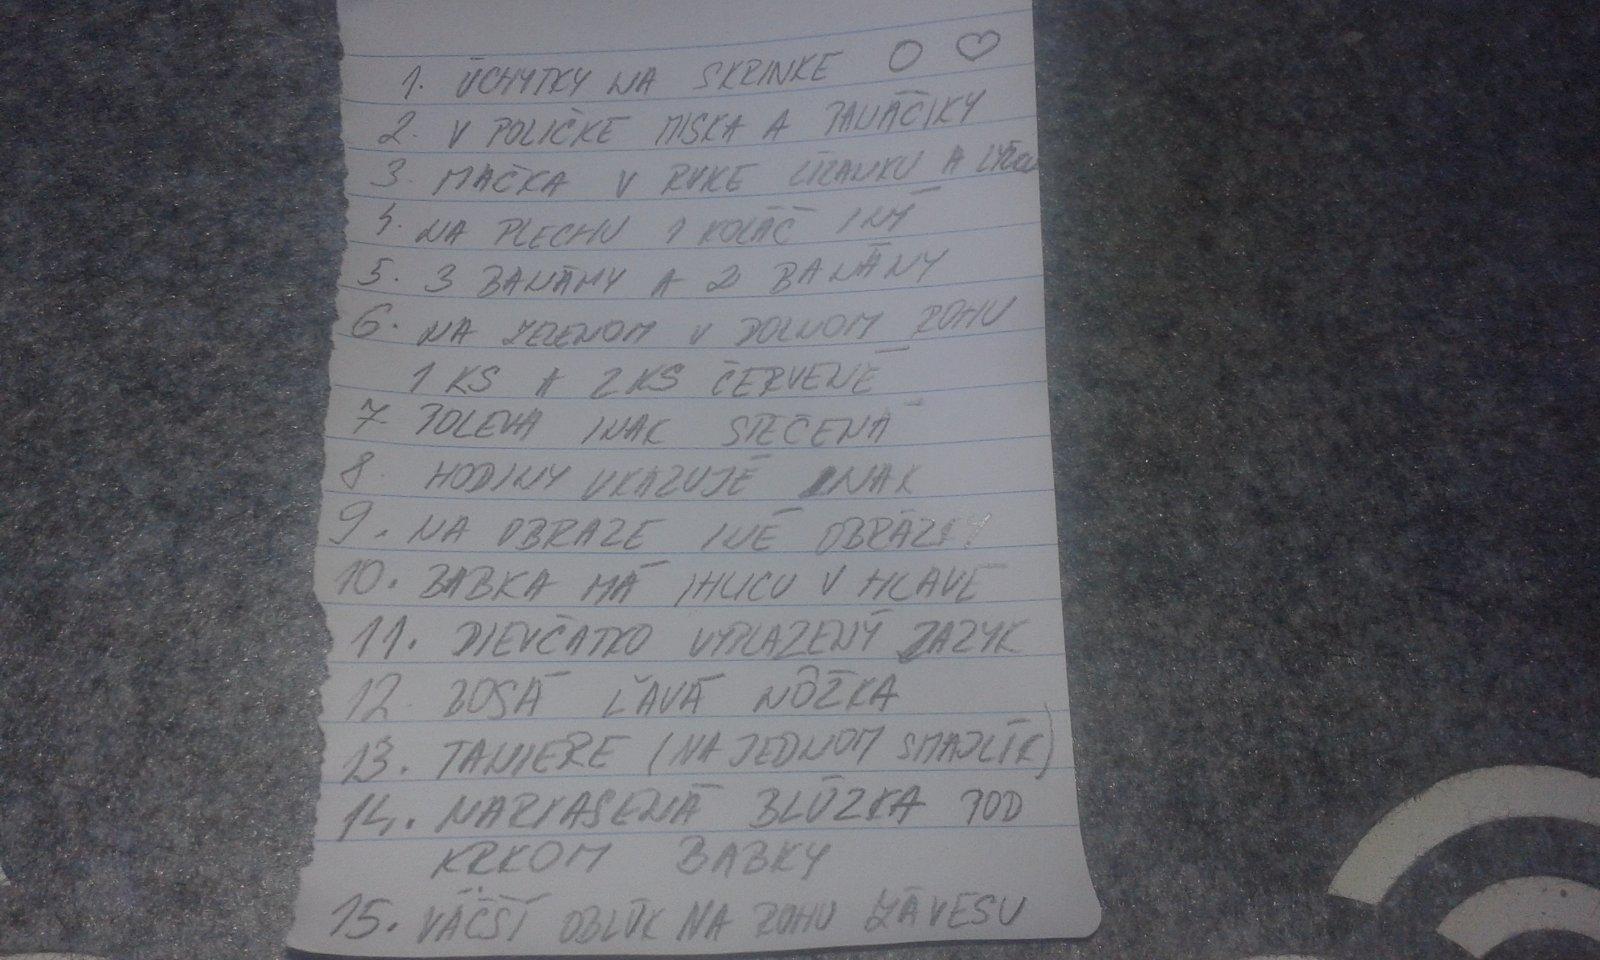 1. ÚCHYTKY NA SKRINKE O ♡
2. V POLIČKE MISKA A PANÁČIKY
3. MAČKA V RUKE LÍZANKU A
4. NA PLECHU 1 KOLÁČ INÝ
5. 3 BANÁNY A 2 BANÁNY
6. NA ZELENOM V DOLNOM ROHU
1 KS A 2 KS ČERVENÉ
7. POLEVA INAK STEČENÁ
8. HODINY UKAZUJÉ INAK
9. NA OBRAZE INÉ OBRÁZKY
10. BABKA MÁ IHLICU V HLAVE
11. DIEVČATKO VYPLAZENÝ JAZYK
12. BOSÁ ĽAVÁ NÔŽKA
13. TANIERE (NA JEDNOM SMAJLÍK)
14. NARIASENÁ BLÚZKA POD
KRKOM BABKY
15. VÄČŠÍ OBLÚK NA ROHU ZÁVESU